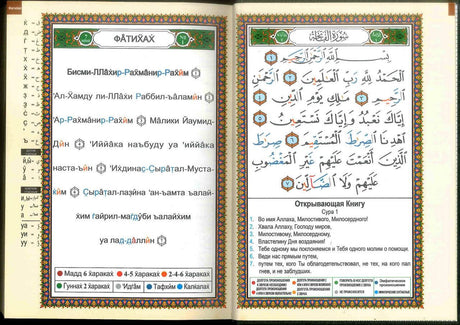 ФА̄ТИХ̣АХ
Бисми-ЛЛа̄хир-Рах̣ма̄нир-Рах̣ӣм ١
Ал-Х̣амду ли-ЛЛа̄хи Раббил-ъа̄ламӣн ٢
Ар-Рах̣ма̄нир-Рах̣ӣм ٣ Ма̄лики Йаумид-
Дӣн ٤ Иййа̄ка наъбуду уа иййа̄ка
наста-ъӣн ٥ Ихдинас̣-С̣ира̄т̣ал-Муста-
к̣ӣм ٦ С̣ира̄т̣ал-лаз̱ӣна анъамта ъалай-
хим г̣айрил-маг̣д̣ӯби ъалайхим
уа лад̣-д̣а̄ллӣн ٧
Мадд 6 х̣араках
4-5 х̣араках
2-4-6 х̣араках
Гуннах 2 х̣араках
Идг̣а̄м
Тафхӣм
К̣алк̣алах
سُورَةُ الْفَاتِحَةِ
بِسْمِ اللَّهِ الرَّحْمَٰنِ الرَّحِيمِ ١
الْحَمْدُ لِلَّهِ رَبِّ الْعَالَمِينَ ٢ الرَّحْمَٰنِ
الرَّحِيمِ ٣ مَالِكِ يَوْمِ الدِّينِ
٤ إِيَّاكَ نَعْبُدُ وَإِيَّاكَ نَسْتَعِينُ ٥
اهْدِنَا الصِّرَاطَ الْمُسْتَقِيمَ ٦ صِرَاطَ
الَّذِينَ أَنْعَمْتَ عَلَيْهِمْ غَيْرِ الْمَغْضُوبِ
عَلَيْهِمْ وَلَا الضَّالِّينَ ٧
Открывающая Книгу
Сура 1
1. Во имя Аллаха, Милостивого, Милосердного!
2. Хвала Аллаху, Господу миров,
3. Милостивому, Милосердному,
4. Властелину Дня воздаяния!
5. Тебе одному мы поклоняемся и Тебя одного молим о помощи.
6. Веди нас прямым путем,
7. путем тех, кого Ты облагодетельствовал, не тех, на кого пал
гнев, и не заблудших.